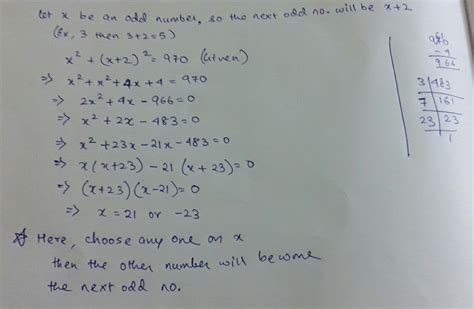 Let x be an odd number, so the next odd no. will be x+2
(Ex, 3 then 3+2=5)
x² + (x+2)² = 970 (Given)
⇒ x² + x² + 4x + 4 = 970
⇒ 2x² + 4x - 966 = 0
⇒ x² + 2x - 483 = 0
⇒ x² + 23x - 21x - 483 = 0
⇒ x(x+23) - 21(x+23) = 0
⇒ (x+23)(x-21) = 0
⇒ x = 21 or -23
Here, choose any one on x
then the other number will become
the next odd no.
966
3 | 483
7 | 161
23 | 23
1